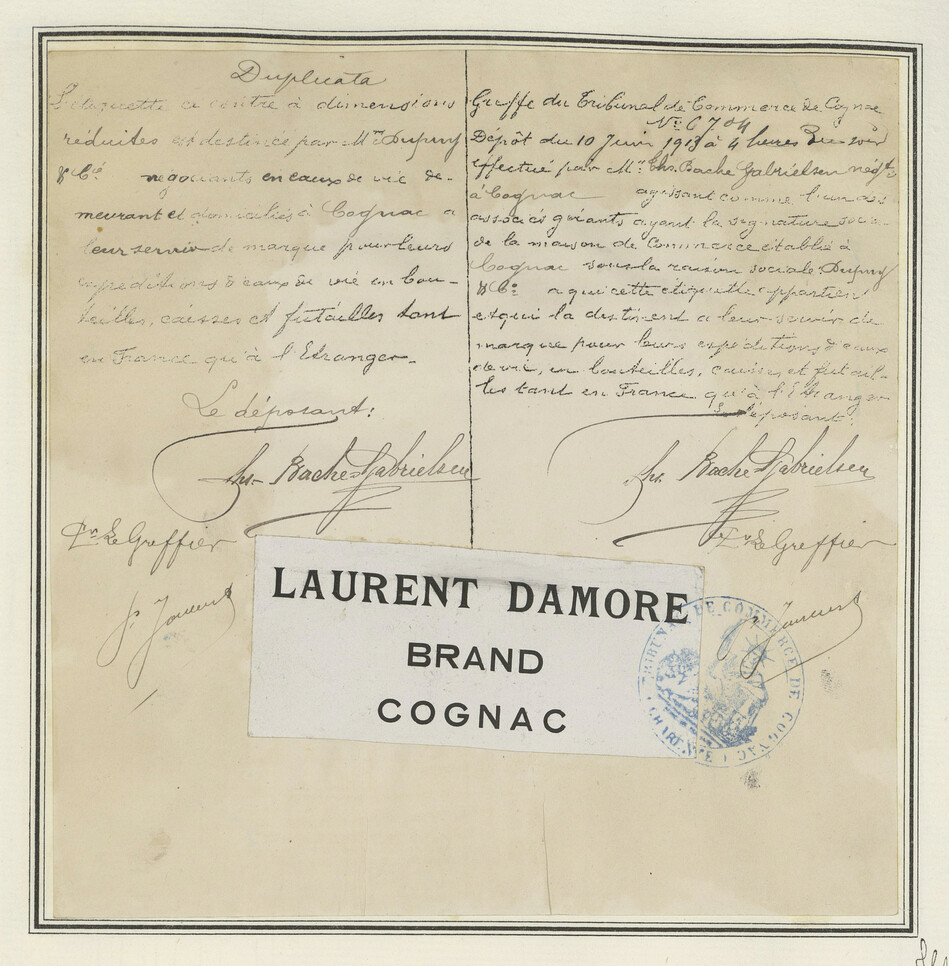 Duplicata
L'étiquette ci contre à dimensions
réduites est destinée par Mrs Dupuy
& Cie négociants en eaux de vie de-
meurant et domiciliés à Cognac a
leur servir de marque pour leurs
expéditions d'eaux de vie en bou-
teilles, caisses et futailles tant
en France qu'à l'Etranger.
Le déposant:
Bache-Gabrielsen
Le Greffier
Greffe du Tribunal de Commerce de Cognac
No 6704
Dépôt du 10 Juin 1913 à 4 heures du soir
effectué par Mr Chs. Bache Gabrielsen négt
à Cognac agissant comme l'un des
associés gérants ayant la signature socia-
de la maison de Commerce établie à
Cognac sous la raison sociale Dupuy
& Cie a qui cette etiquette appartient
et qui la destinent a leur servir de
marque pour leurs expéditions d'eaux
de vie, en bouteilles, caisses et futail-
les tant en France qu'à l'Etranger
Le déposant:
Bache Gabrielsen
Le Greffier
LAURENT DAMORE
BRAND
COGNAC
TRIBUNAL DE COMMERCE DE COGNAC
CHARENTE